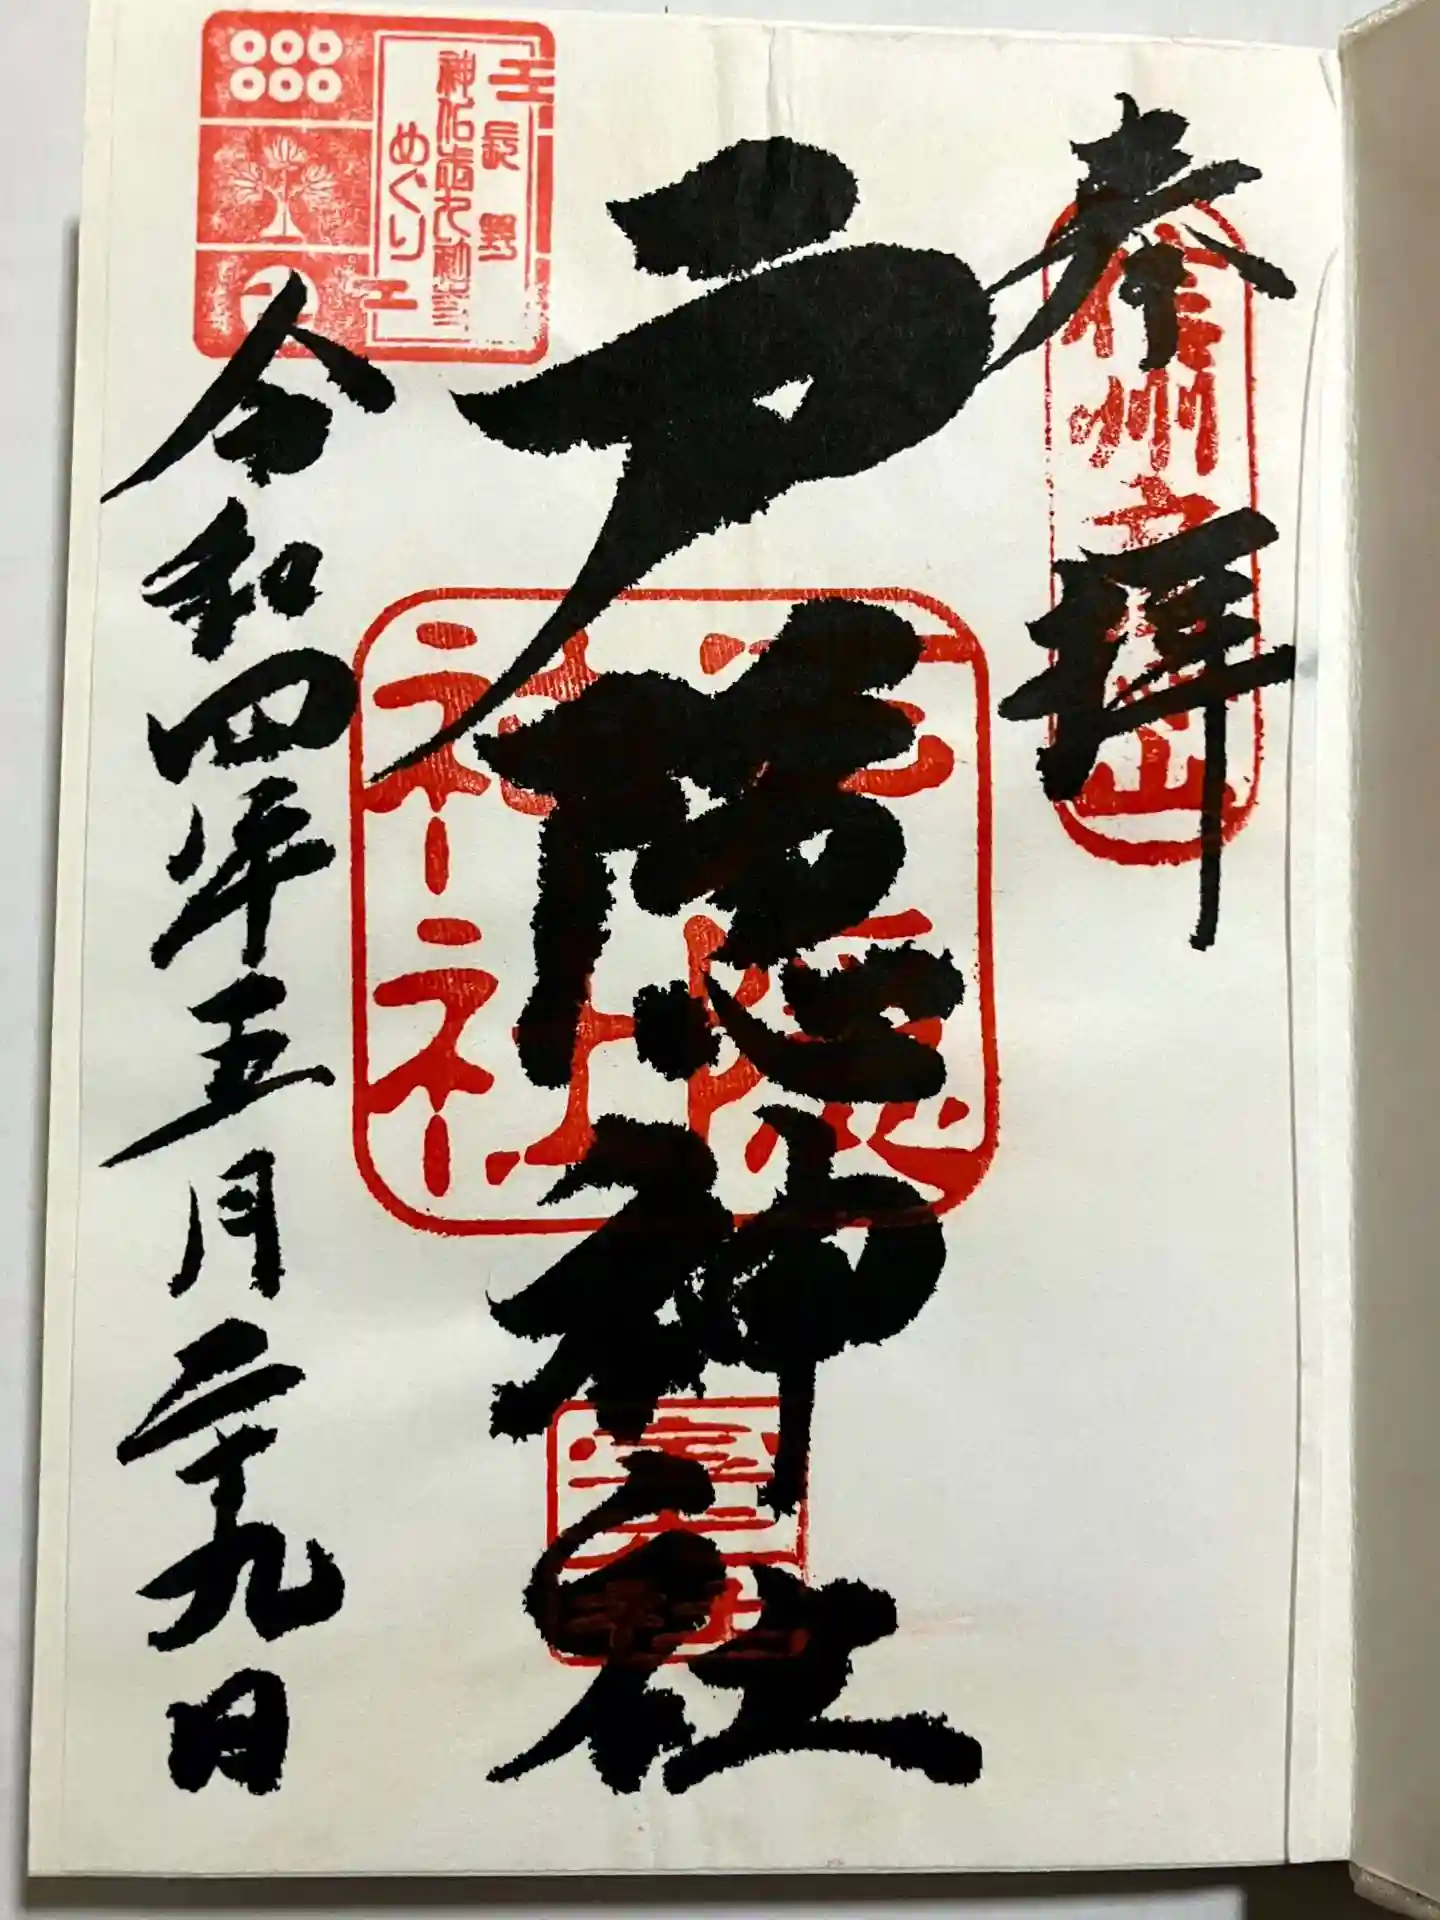 奉拝
信州戸隠山
戸隠神社
戸隠
神社
長野
神仏霊七社
めぐり
令和四年五月二十九日